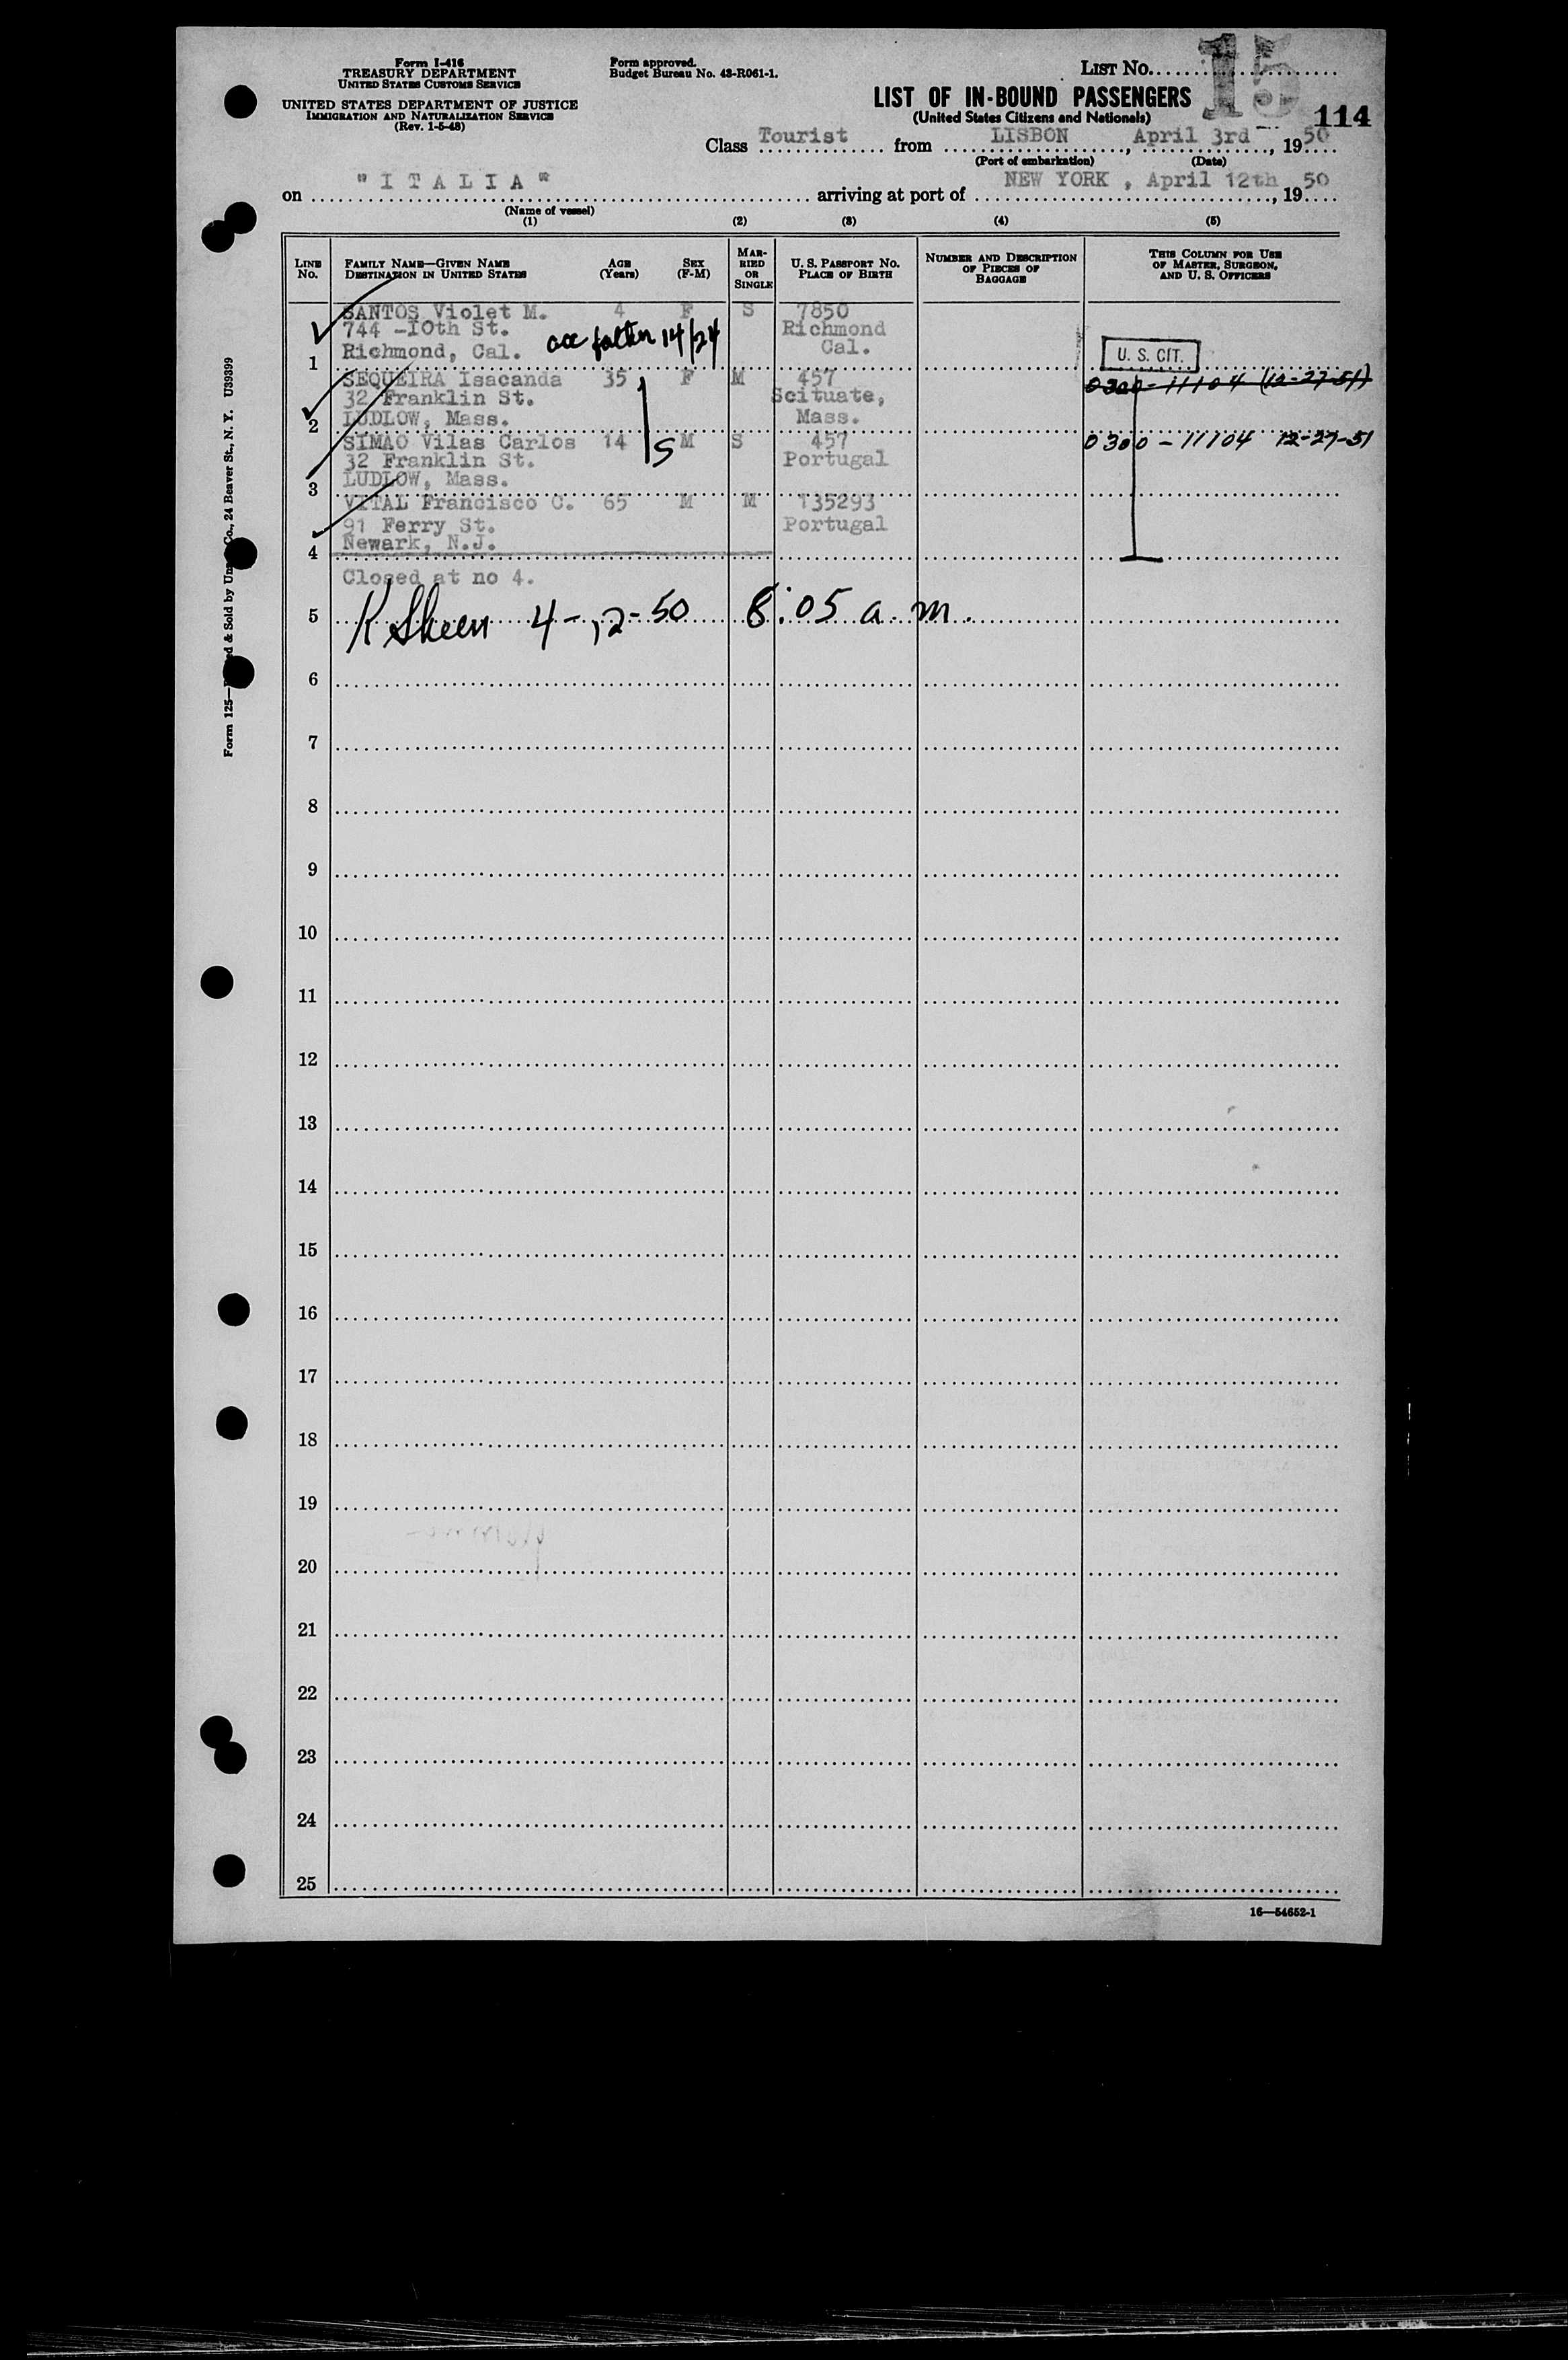 Form I-416
TREASURY DEPARTMENT
UNITED STATES CUSTOMS SERVICE
UNITED STATES DEPARTMENT OF JUSTICE
IMMIGRATION AND NATURALIZATION SERVICE
(Rev. 1-5-48)
Form approved.
Budget Bureau No. 43-R061-1.
LIST No. 15
LIST OF IN-BOUND PASSENGERS
(United States Citizens and Nationals)
114
Class Tourist from LISBON, April 3rd, 1950
(Port of embarkation) (Date)
on "I T A L I A" arriving at port of NEW YORK, April 12th, 1950
(Name of vessel)
(1) (2) (3) (4) (5)
LINE No. FAMILY NAME—GIVEN NAME DESTINATION IN UNITED STATES AGE (Years) SEX (F-M) MARRIED OR SINGLE U. S. PASSPORT NO. PLACE OF BIRTH NUMBER AND DESCRIPTION OF PIECES OF BAGGAGE THIS COLUMN FOR USE OF MASTER, SURGEON, AND U. S. OFFICERS
SANTOS Violet M. 4 F S 7850
744 -10th St. Richmond
1 Richmond, Cal. acc father 14/24 Cal. U. S. CIT.
SEQUEIRA Isacanda 35 F M 457 0300-11104 (12-27-51)
32 Franklin St. Scituate,
2 LUDLOW, Mass. Mass.
SIMAO Vilas Carlos 14 S M S 457 0300-11104 12-27-51
32 Franklin St. Portugal
3 LUDLOW, Mass.
VITAL Francisco C. 65 M M 135293
91 Ferry St. Portugal
4 Newark, N.J.
Closed at no 4.
5 K Skeen 4-12-50 8:05 a.m.
6
7
8
9
10
11
12
13
14
15
16
17
18
19
20
21
22
23
24
25
16—54652-1
Form 125— & Sold by Co., 24 Beaver St., N. Y. U39399